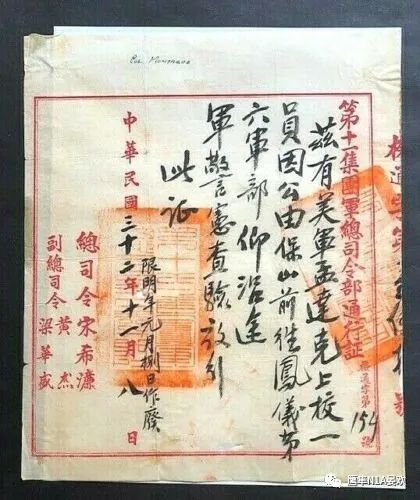 第十一集團軍總司令部通行証
通字第154號
茲有美軍孟達克上校一
員因公由保山前往鳳儀第
六軍部仰沿途
軍警憲查驗放行
此証
限明年元月捌日作廢
總司令宋希濂
副總司令黃杰
梁華盛
中華民國三十二年十一月八日